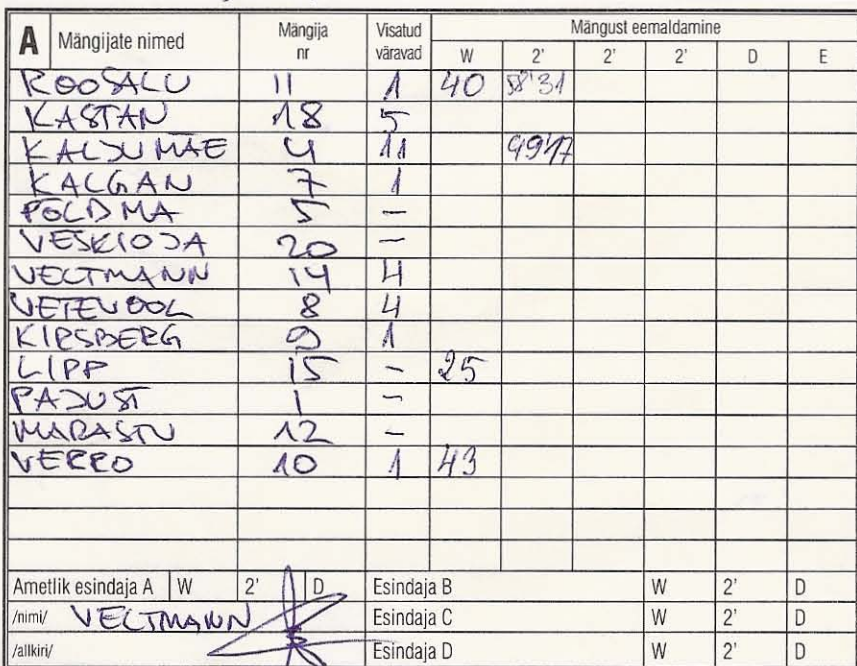 A Mängijate nimed Mängija nr Visatud väravad Mängust eemaldamine
W 2' 2' 2' D E
ROOSALU 11 1 40 58'31
KASTAN 18 5
KALJUMÄE 4 11 49'17
KALGAN 7 1
POLDMA 5 —
VESKIOJA 20 —
VELTMANN 14 4
VETEVOOL 8 4
KIRSBERG 9 1
LIPP 15 — 25
PAJUST 1 —
MARASTU 12 —
VERRO 10 1 43
Ametlik esindaja A W 2' D Esindaja B W 2' D
/nimi/ VELTMANN Esindaja C W 2' D
/allkiri/ Esindaja D W 2' D